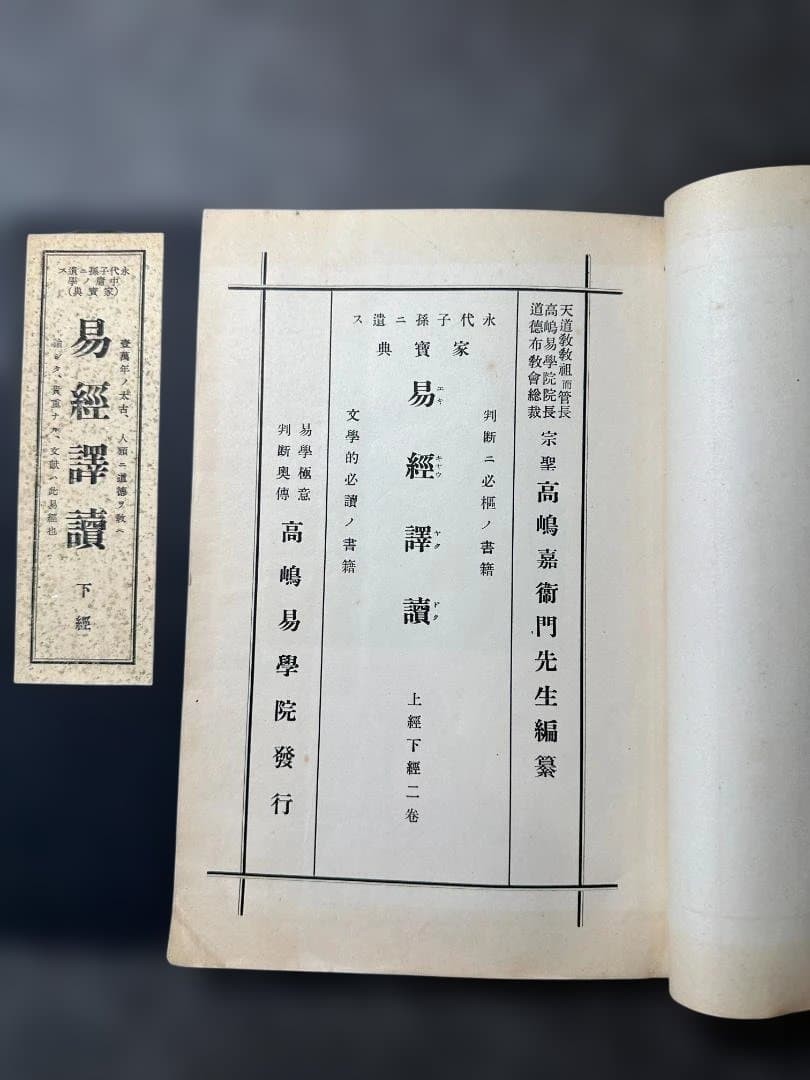 天道敎敎祖而管長
高嶋易學院院長
道德布敎會總裁
宗聖 高嶋嘉衞門先生編纂
永代子孫ニ遺ス
家寶典
判断ニ必樞ノ書籍
易經譯讀 上經下經二卷
エキ キヤウ ヤク ドク
文學的必讀ノ書籍
易學極意
判断奥傳
高嶋易學院發行
永代子孫ニ遺ス
中庸ノ學
(家寶典)
壹萬年ノ太古、人類ニ道德ヲ敎ヘ
易經譯讀 下經
諭シタ、貴重ナル、文献ハ此易經也